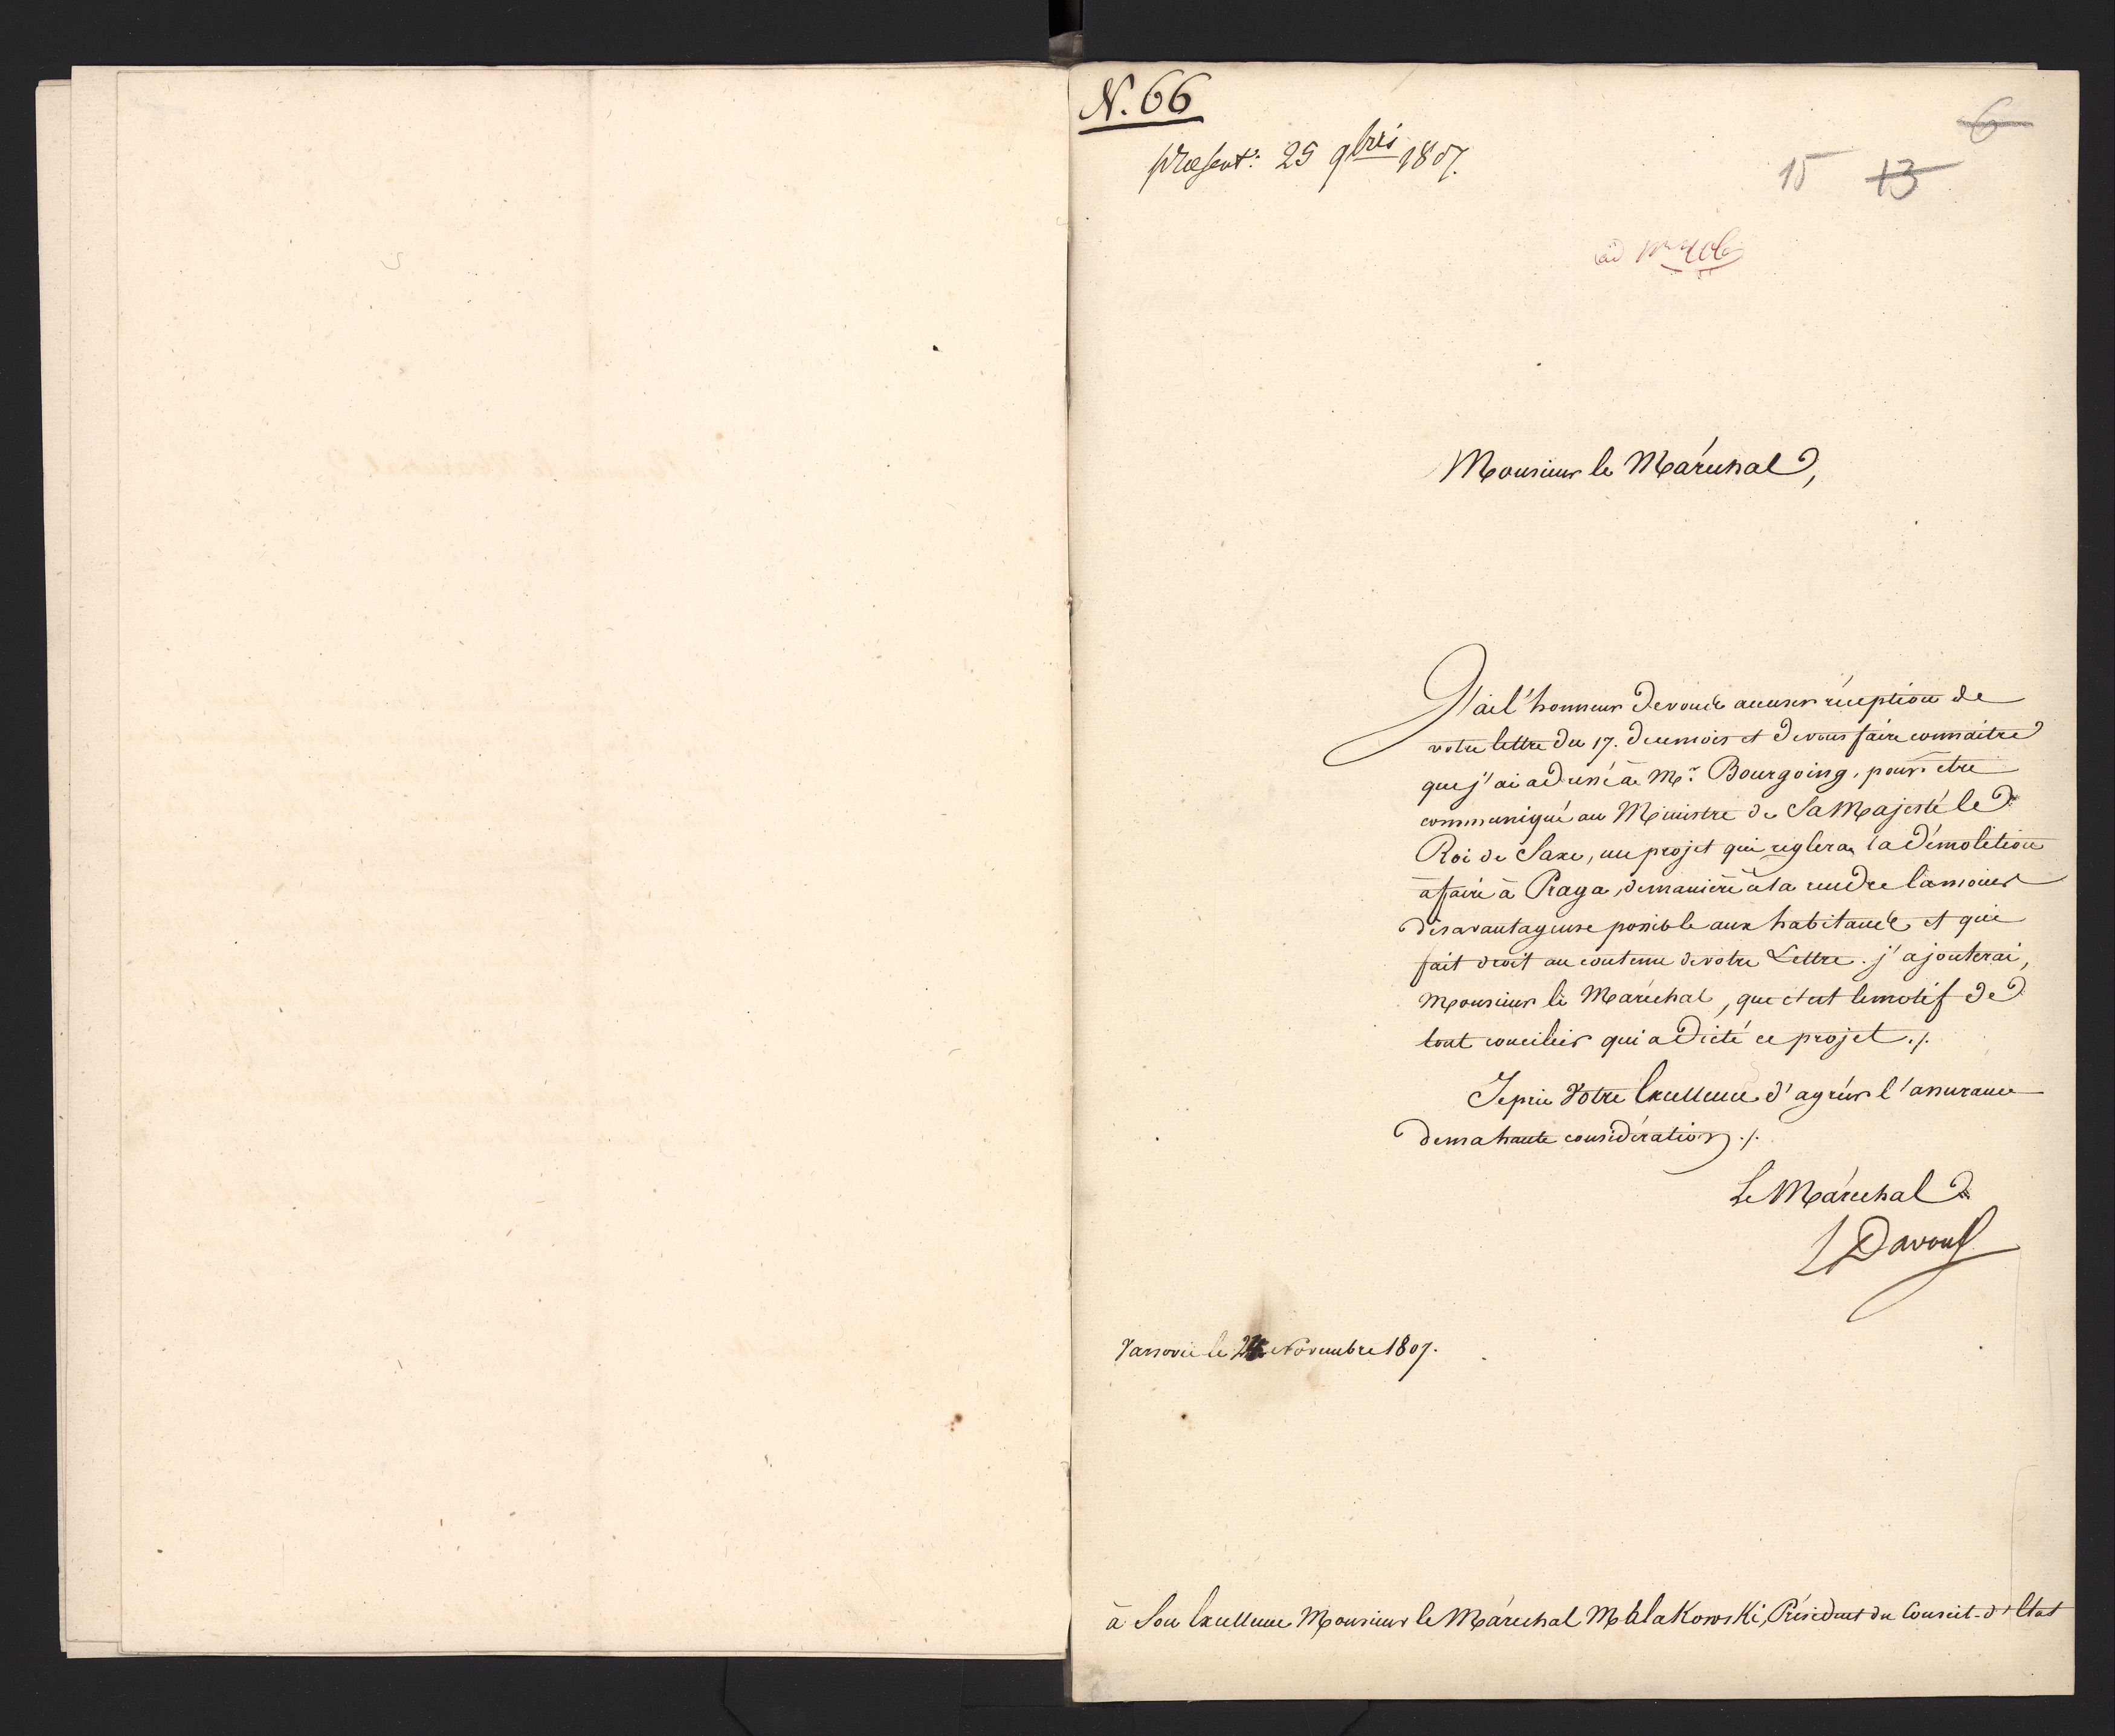 N. 66
præsent: 25 9bris 1807.
6
15 13
ad
Monsieur le Maréchal,
J'ai l'honneur de vous accuser réception de
votre lettre du 17. de ce mois et de vous faire connaitre
que j'ai adressé à Mr. Bourgoing, pour être
communiqué au Ministre de Sa Majesté le
Roi de Saxe, un projet qui reglera la démolition
à faire à Praga, de manière à la rendre la moins
désavantageuse possible aux habitants et qui
fait droit au contenu de votre Lettre. j'ajouterai,
Monsieur le Maréchal, que c'est le motif de
tout concilier qui a dicté ce projet ./.
Je prie Votre Excellence d'agréer l'assurance
de ma haute considération ./.
Le Maréchal
L Davout
Varsovie le 24 Novembre 1807.
à Son Excellence Monsieur le Maréchal Malakowski, Président du Conseil-d'Etat